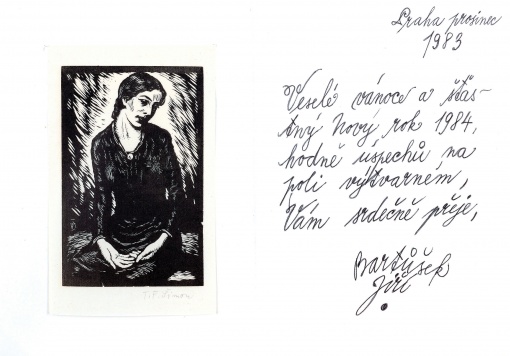 Praha prosinec
1983
Veselé vánoce a šťas-
tný Nový rok 1984,
hodně úspechů na
poli výtvarném,
Vám srdečně přeje,
Bartůšek
Jiří